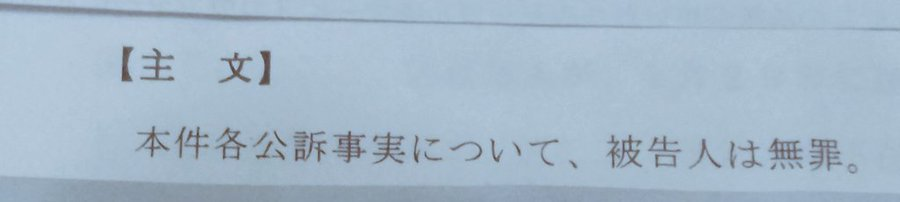 【主　文】
本件各公訴事実について、被告人は無罪。